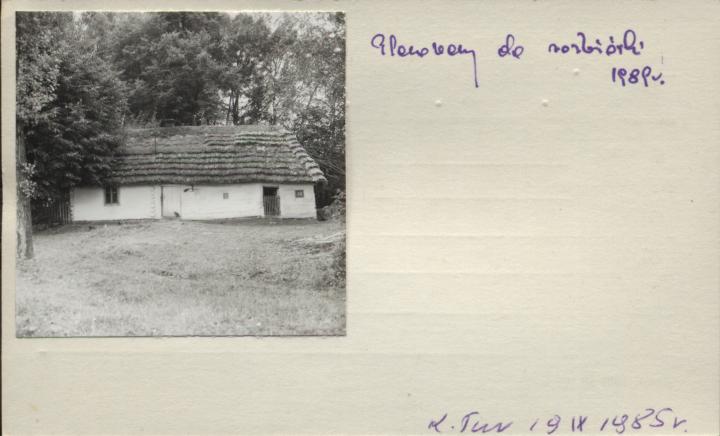 Planowany do rozbiórki
1989r.
Z. Tur 19 IX 1985r.